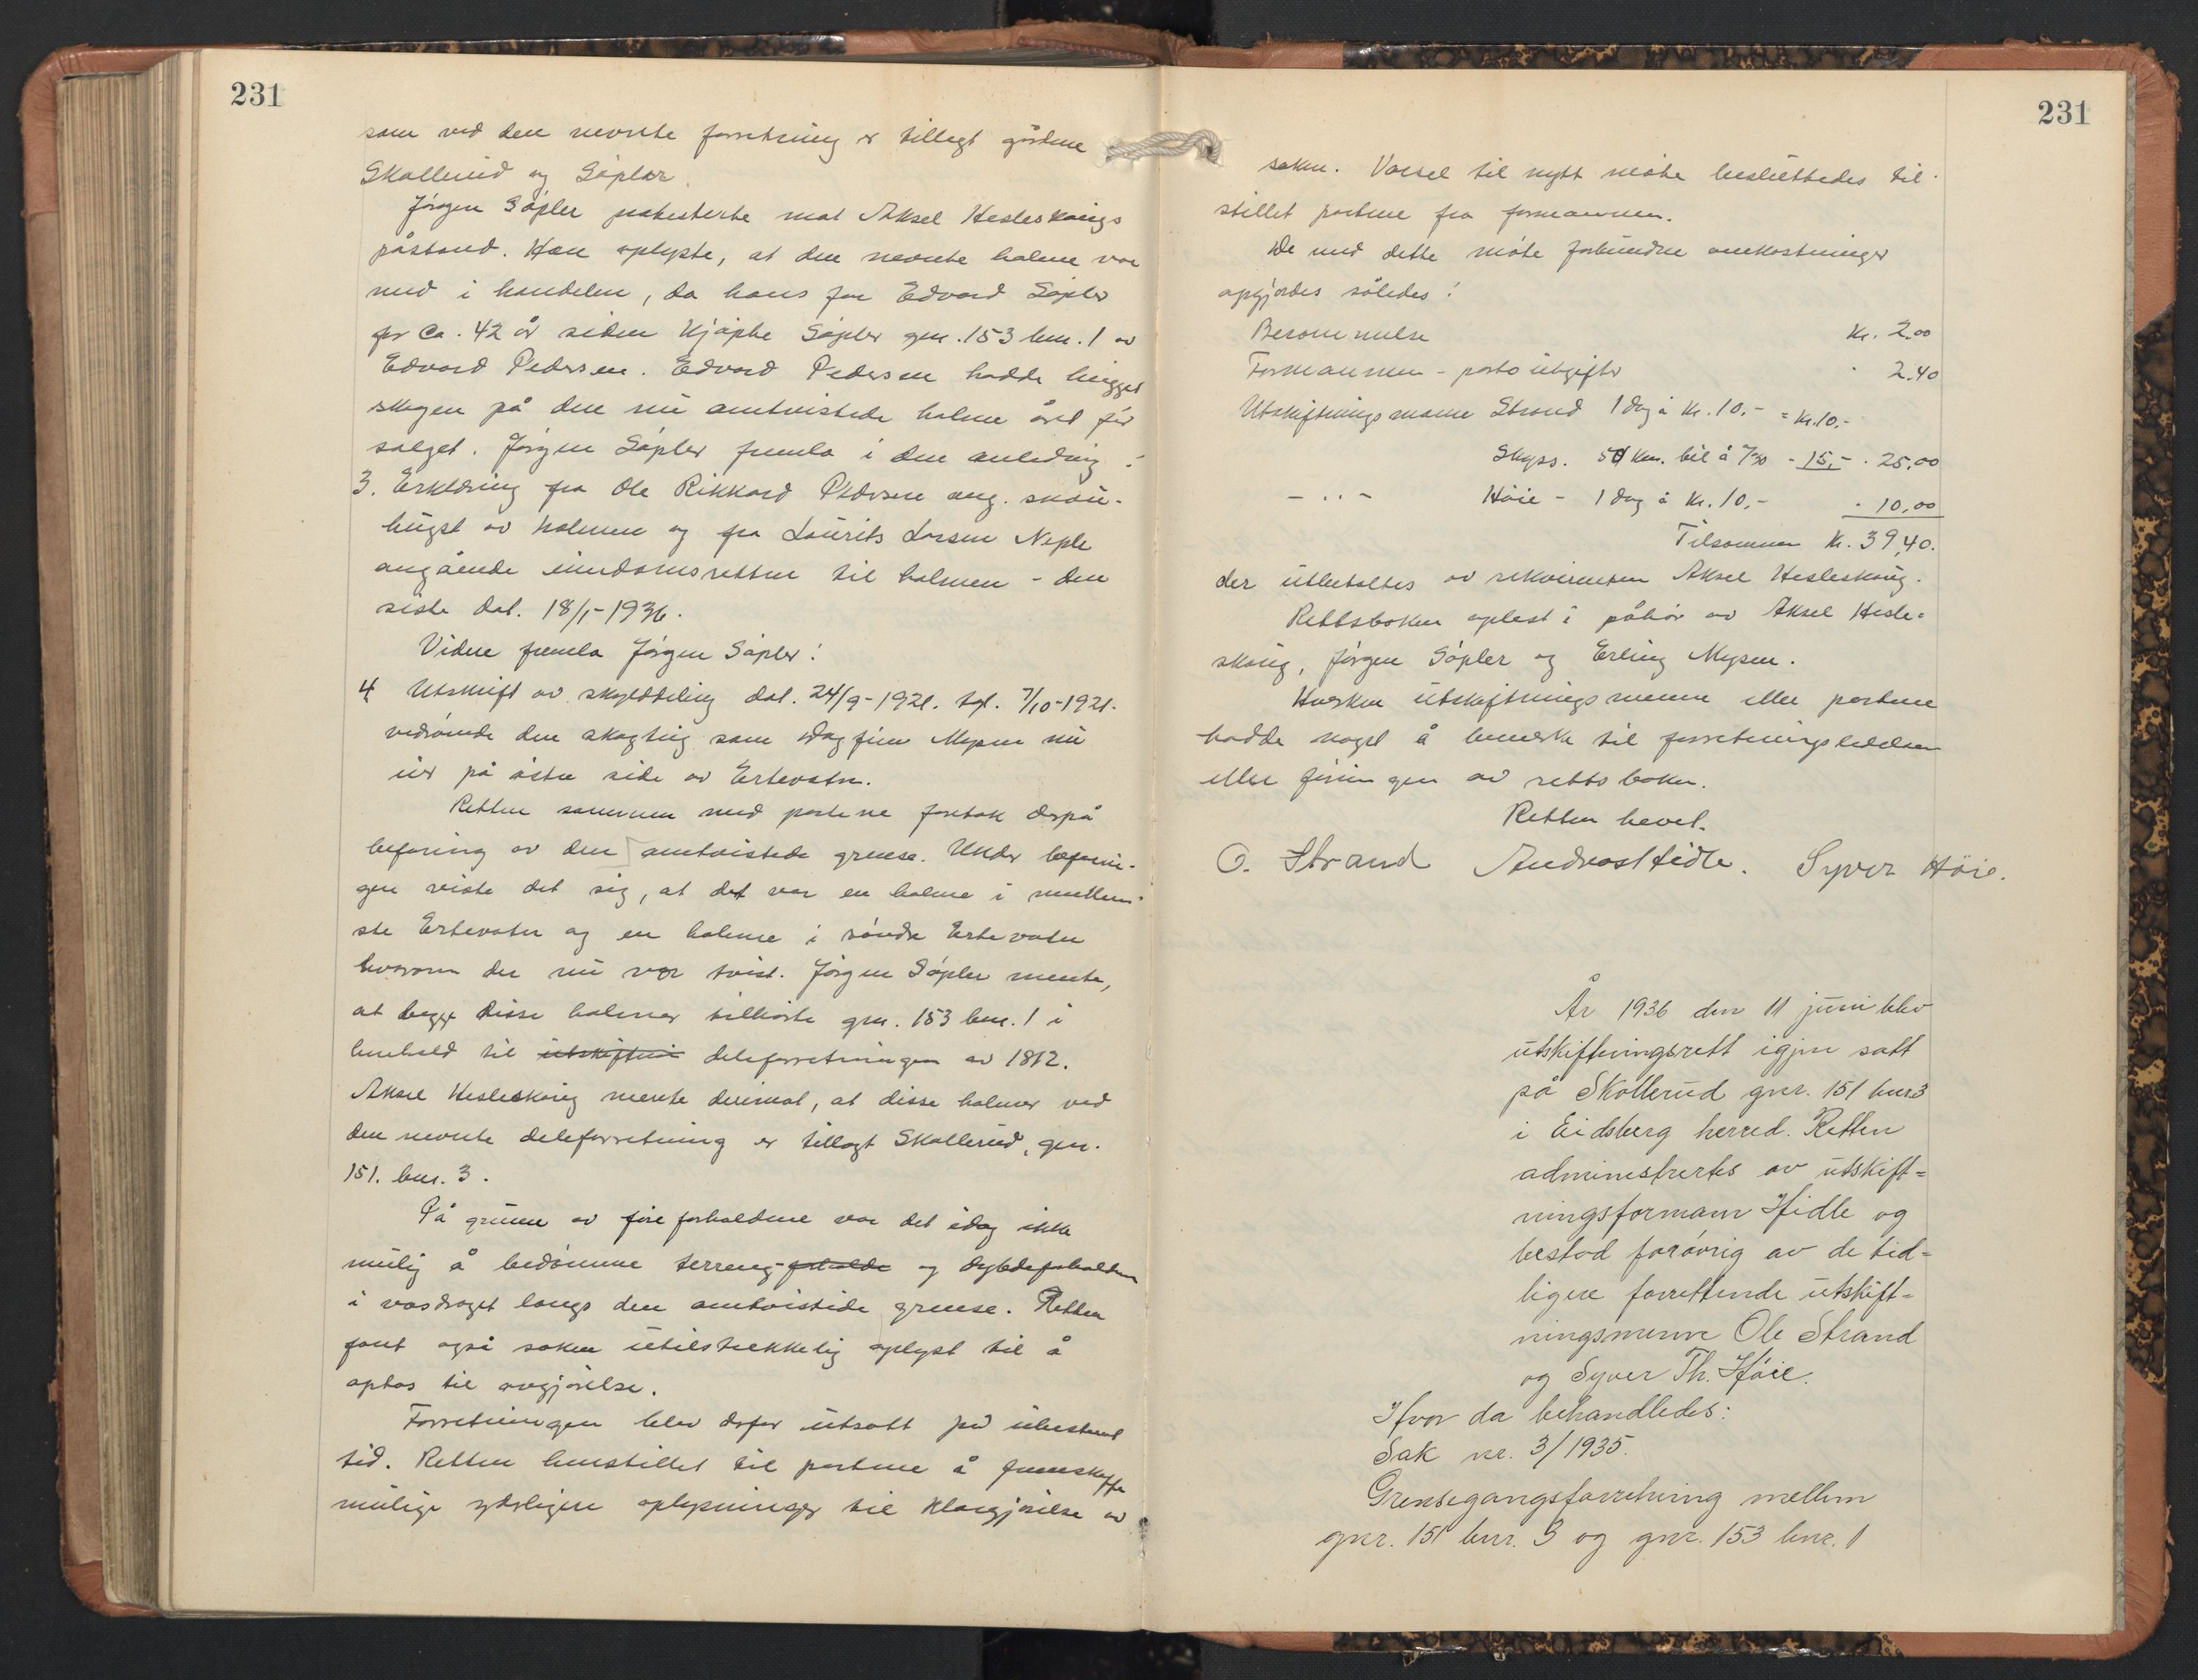 231
som ved den nevnte forretning er tillagt gårdene
Skallerud og Søpler.
Jørgen Søpler protesterte mot Aksel Hesleskaugs
påstand. Han oplyste, at den nevnte holme var
med i handelen, da hans far Edvard Søpler
for ca. 42 år siden kjøpte Søpler gnr. 153 bnr. 1 av
Edvard Pedersen. Edvard Pedersen hadde hugget
skogen på den nu omtvistede holme året før
salget. Jørgen Søpler fremla i den anledning:
3. Erklæring fra Ole Rikkard Pedersen ang. skau-
hugst av holmen og fra Laurits Larsen Neple
angående eiendomsretten til holmen - den
siste dat. 18/1-1936.
Videre fremla Jørgen Søpler:
4 Utskrift av skylddeling dat. 24/9-1921. tgl. 7/10-1921.
vedrørende den skogteig som Dagfinn Mysen nu
eier på østre side av Ertevatn.
Retten sammen med partene foretok derpå
befaring av den omtvistede grense. Under befarin-
gen viste det sig, at det var en holme i mellem-
ste Ertevatn og en holme i søndre Ertevatn
hvorom der nu var tvist. Jørgen Søpler mente,
at begge disse holmer tilhørte gnr. 153 bnr. 1 i
henhold til utskiftnin deleforretningen av 1812.
Aksel Hesleskaug mente derimot, at disse holmer ved
den nevnte deleforretning er tillagt Skallerud, gnr.
151. bnr. 3.
På grunn av føreforholdene var det idag ikke
mulig å bedømme terreng-forholde og dybdeforholdene
i vasdraget langs den omtvistede grense. Retten
fant også saken utilstrekkelig oplyst til å
optas til avgjørelse.
Forretningen blev derfor utsatt på ubestemt
tid. Retten henstillet til partene å fremskaffe
mulige yderligere oplysninger til klargjørelse av
231
saken. Varsel til nytt møte besluttedes til-
stillet partene fra formannen.
De med dette møte forbundne omkostninger
opgjordes således:
Berammelse Kr. 2.00
Formannen - porto utgifter " 2.40
Utskiftningsmann Strand 1 dag à Kr. 10.- = Kr. 10.-
Skyss. 50 km. bil à 7/30 - 15,- " 25,00
- " - Höie - 1 dag à Kr. 10,- " 10,00
Tilsammen Kr. 39,40.
der utbetaltes av rekvirenten Aksel Hesleskaug.
Rettsboken oplest i påhør av Aksel Hesle-
skaug, Jørgen Søpler og Erling Mysen.
Hverken utskiftningsmenn eller partene
hadde noget å bemerke til forretningsledelsen
eller føringen av rettsboken.
Retten hevet.
O. Strand Andreas Hidle. Syver Höie.
År 1936 den 11 juni blev
utskiftningsrett igjen satt
på Skollerud gnr. 151 bnr 3
i Eidsberg herred. Retten
administrertes av utskift-
ningsformann Hidle og
bestod forøvrig av de tid-
ligere forrettende utskift-
ningsmenn Ole Strand
og Syver Th. Høie.
Hvor da behandledes:
Sak nr. 3/1935.
Grensegangsforretning mellem
gnr. 151 bnr. 3 og gnr. 153 bnr. 1